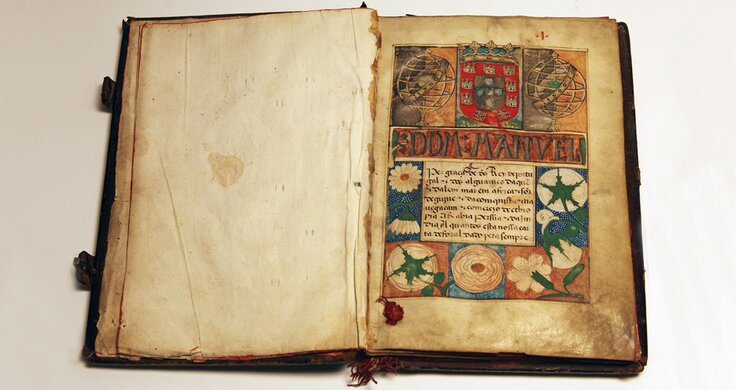 DOM: MANVEL
Per graça de ds Rey de portu
gal & dos alguarues daque
& dalem mar em africa sor
de guine & da comquista & na
uegacam & comercio de ethio
pia Arabia Persia & da In
dia A quantos esta nossa car
ta de foral dado pera sempre